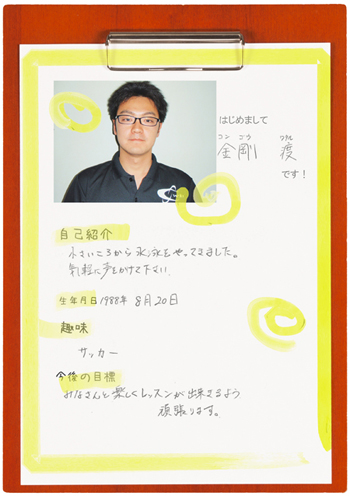 はじめまして
コン ゴウ ワタル
金剛 渡
です！
自己紹介
小さいころから水泳をやってきました。
気軽に声をかけて下さい。
生年月日 1988年 8月20日
趣味
サッカー
今後の目標
みなさんと楽しくレッスンが出来るよう
頑張ります。